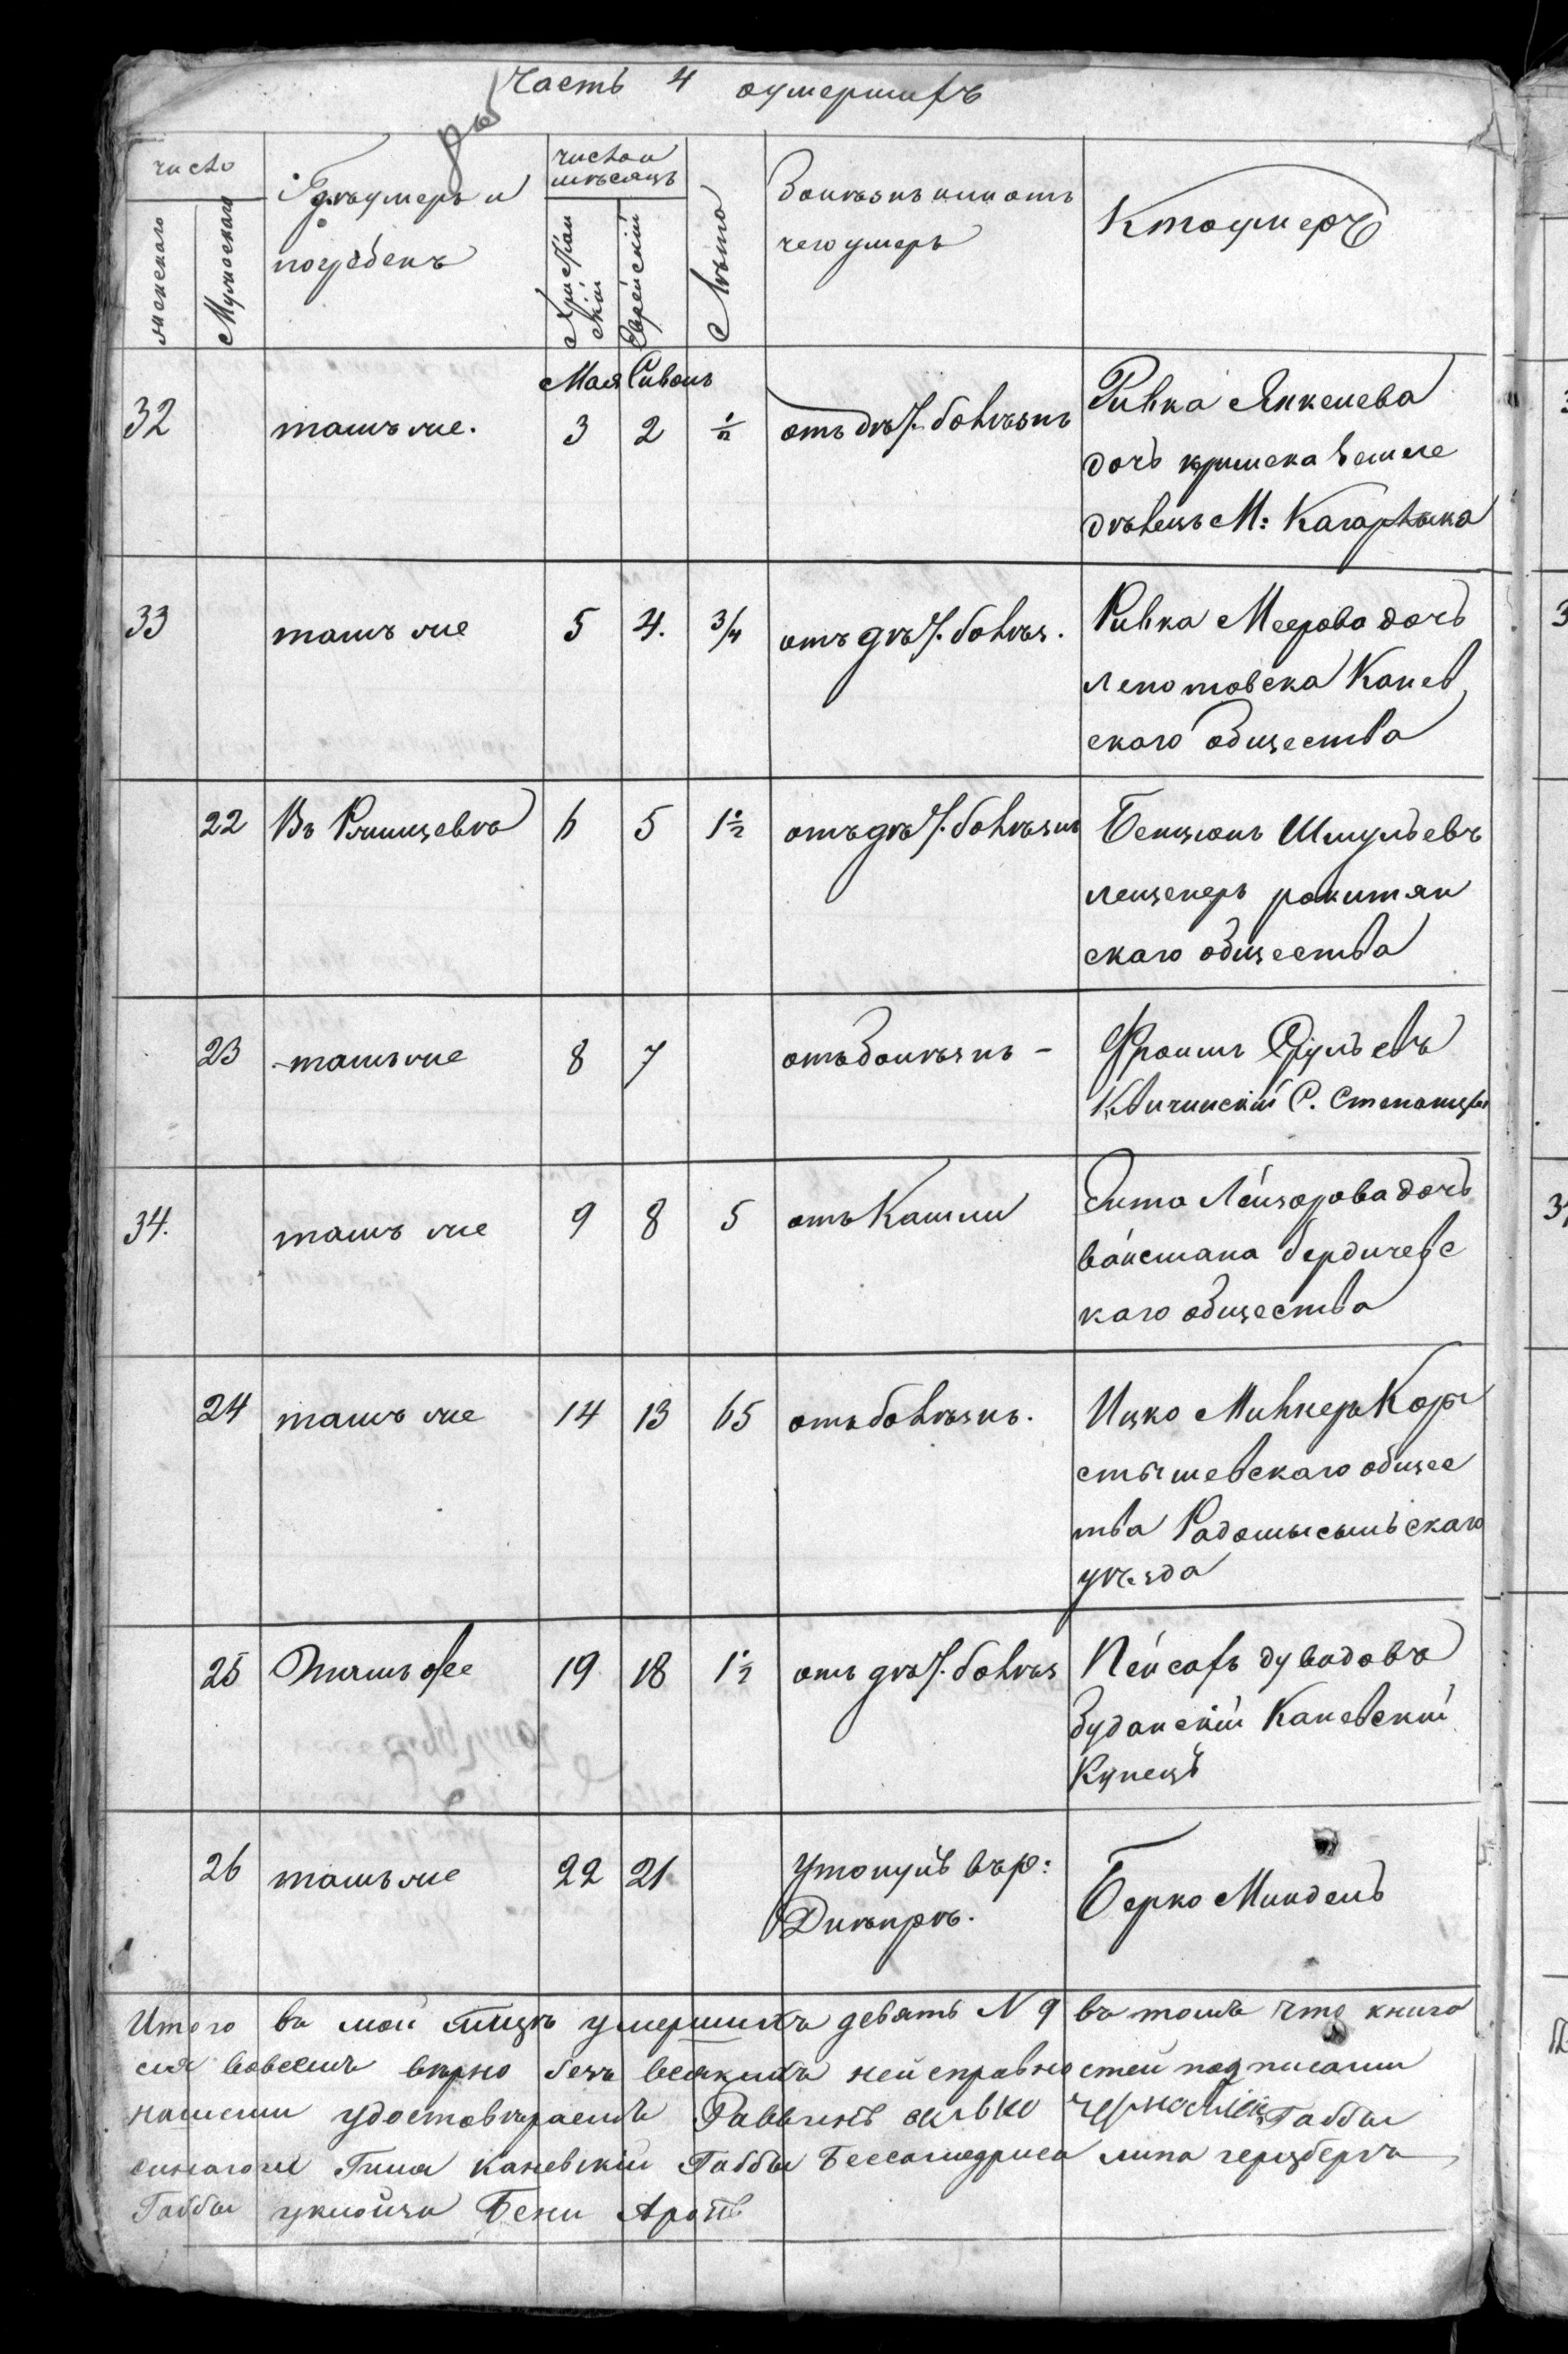 Часть 4 оумершихъ
число
Гдѣ умеръ и
погребенъ
число и
мѣсяцъ
Болѣзнь или отъ
чего умеръ
Кто умеръ
женскаго
Мужескаго
Христіан
скій
Еврейскій
Лѣта
Мая Сивонъ
32 тамъ же. 3 2 ½ отъ дѣт. болѣзнь Ривка Янкелева
дочь земле
дѣлецъ М: Кагарлыка
33 тамъ же 5 4. 3/4 отъ дѣт. болѣз. Ривка Меерова дочь
Канев
скаго общества
22 Въ Ржищевѣ 6 5 1½ отъ дѣт. болѣзнь Бенціонъ Шмульевъ
ракитян
скаго общества
23 тамъ же 8 7 отъ болѣзнь - Фроимъ Срульевъ
С. Степанцы
34. тамъ же 9 8 5 отъ Кашли Лейзорова дочь
вайсмана бердичевс
каго общества
24 тамъ же 14 13 65 отъ болѣзнь. Ицко Милнеръ Кор
стышевскаго общес
тва Радомысльскаго
уѣзда
25 тамъ же 19 18 1½ отъ дѣт. болѣз Пейсахъ дувидовъ
буданскій Каневскій
Купецъ
26 тамъ же 22 21 Утонулъ въ р:
Днѣпрѣ.
Берко Миндель
Итого въ май мицѣ умершихъ девять N 9 въ томъ что книга
сія вовсемъ вѣрно безъ всякихъ неисправностей подписами
нашеми удостовѣраемъ Раввинъ Габбы
синагоги Каневскій Габбы Бессамедриса липа герцбергъ
Габбы Бени Аронъ